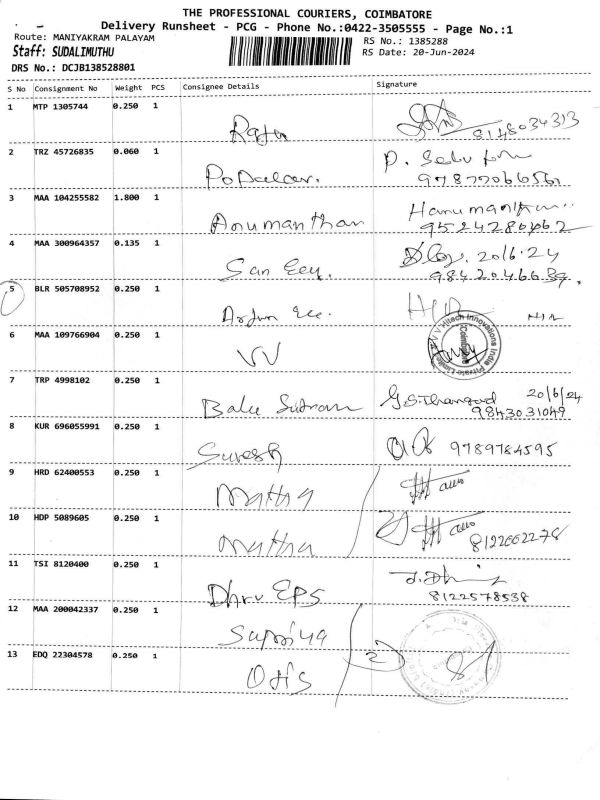 THE PROFESSIONAL COURIERS, COIMBATORE
Delivery Runsheet - PCG - Phone No.:0422-3505555 - Page No.:1
Route: MANIYAKRAM PALAYAM
RS No.: 1385288
Staff: SUDALIMUTHU
RS Date: 20-Jun-2024
DRS No.: DCJB138528801
S No Consignment No Weight PCS Consignee Details Signature
1 MTP 1305744 0.250 1 Raju 8148034313
2 TRZ 45726835 0.060 1 P.
3 MAA 104255582 1.800 1 Anumanthan Hanumanthan
4 MAA 300964357 0.135 1 San Eey. 20/6.24
5 BLR 505708952 0.250 1 Arjun
6 MAA 109766904 0.250 1 VV V V Hitech Innovations India Private Limited Coimbatore
7 TRP 4998102 0.250 1 Balu 20/6/24
9843031049
8 KUR 696055991 0.250 1 Suresh 9789784595
9 HRD 62400553 0.250 1 Mattha
10 HDP 5089605 0.250 1 Mattha
11 TSI 8120400 0.250 1 Dhru EPS
8122578538
12 MAA 200042337 0.250 1 Supriya
13 EDQ 22304578 0.250 1 Otis 2